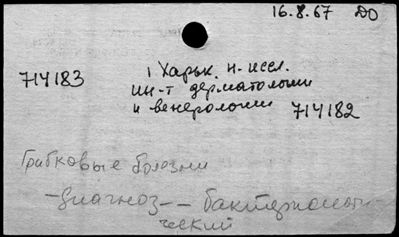 16.8.67 ДО
714183
1 Харьк. н-иссл.
ин-т дерматологии
и венерологии 714182
Грибковые болезни
-диагноз-- бактериологи-
ческий